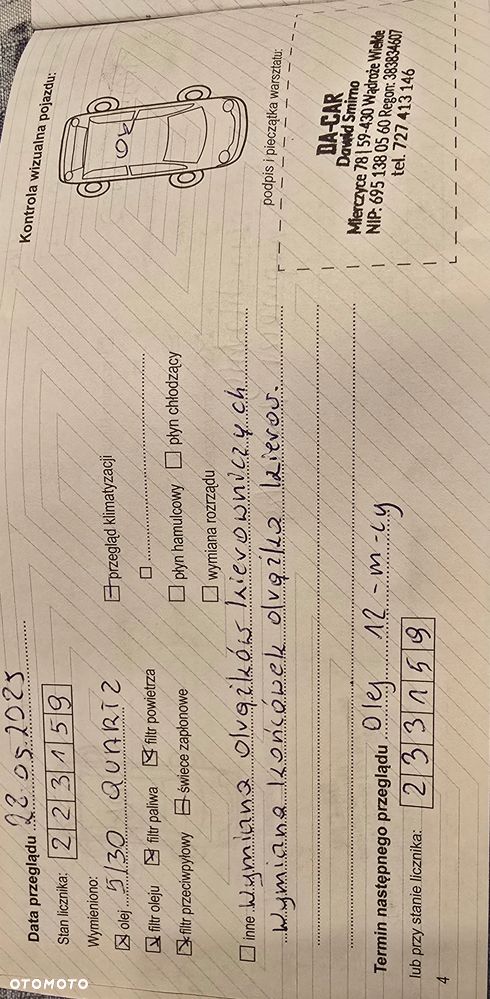 Data przeglądu 22.05.2025
Stan licznika: 223159
Kontrola wizualna pojazdu:
OK
Wymieniono:
olej 5/30 QUARTZ
przegląd klimatyzacji
filtr oleju filtr paliwa filtr powietrza
filtr przeciwpyłowy świece zapłonowe
płyn hamulcowy płyn chłodzący
wymiana rozrządu
inne Wymiana drążków kierowniczych
Wymiana końcówek drążka kierow.
podpis i pieczątka warsztatu:
DA-CAR
Dawid Smirno
Mierczyce 78 | 59-430 Wądroże Wielkie
NIP: 695 138 05 60 Regon: 383834607
tel. 727 413 146
Termin następnego przeglądu Olej 12-m-cy
lub przy stanie licznika: 233159
4
OTOMOTO